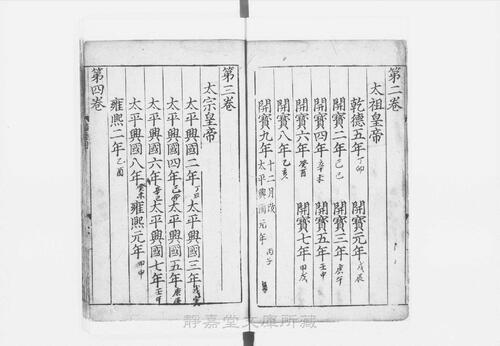 第二卷
太祖皇帝
乾德五年丁卯 開寶元年戊辰
開寶二年己巳 開寶三年庚午
開寶四年辛未 開寶五年壬申
開寶六年癸酉 開寶七年甲戌
開寶八年乙亥
開寶九年十二月改太平興國元年 丙子
第三卷
太宗皇帝
太平興國二年丁丑 太平興國三年戊寅
太平興國四年己卯 太平興國五年庚辰
太平興國六年辛巳 太平興國七年壬午
太平興國八年癸未 雍熙元年甲申
雍熙二年乙酉
第四卷
靜嘉堂文庫所藏